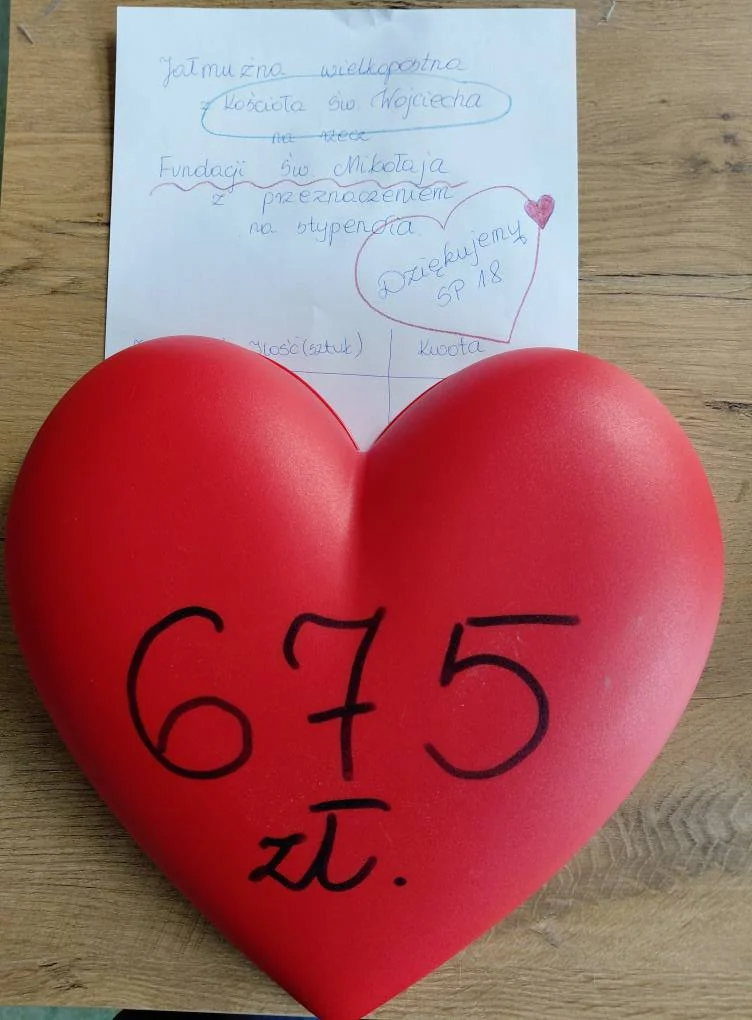 Jałmużna wielkopostna
z Kościoła św. Wojciecha
na rzecz
Fundacji św. Mikołaja
z przeznaczeniem
na stypendia
Dziękujemy
SP 18
Ilość (sztuk)
Kwota
675
zł.